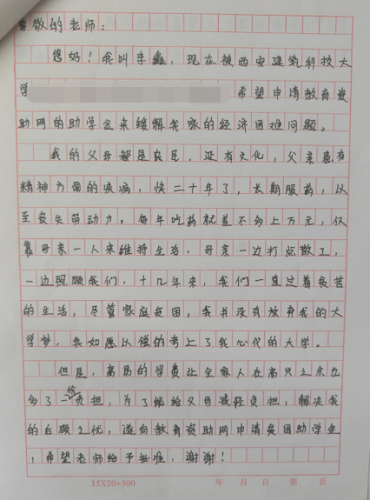 尊敬的老师：
您好！我叫李鑫，现在被西安建筑科技大
学 希望申请教育资
助网的助学金来缓解我家的经济困难问题。
我的父母都是农民，没有文化，父亲患有
精神方面的疾病，快二十年了，长期服药，以
至丧失劳动力，每年吃药就差不多上万元，仅
靠母亲一人来维持生活，母亲一边打点散工，
一边照顾我们，十几年来，我们一直过着贫苦
的生活，尽管家庭贫困，我并没有放弃我的大
学梦，我如愿以偿的考上了我心仪的大学。
但是，高昂的学费让全家人在高兴之余也
多了一份负担，为了能给父母减轻负担，解决我
的后顾之忧，遂向教育资助网申请贫困助学金
，希望老师给予批准，谢谢！
15X20=300 年 月 日 第 页